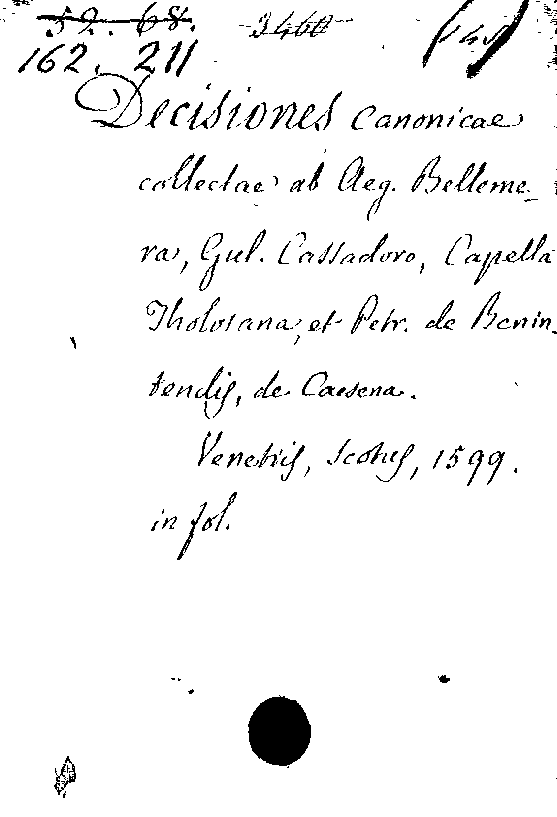 59. 68. 3460
162. 211
Decisiones Canonicae
collectae ab Aeg. Belleme-
ra, Gul. Cassadoro, Capella
Tholosana, et Petr. de Benin-
tendis, de Caesena.
Venetiis, Scotus, 1599.
in fol.